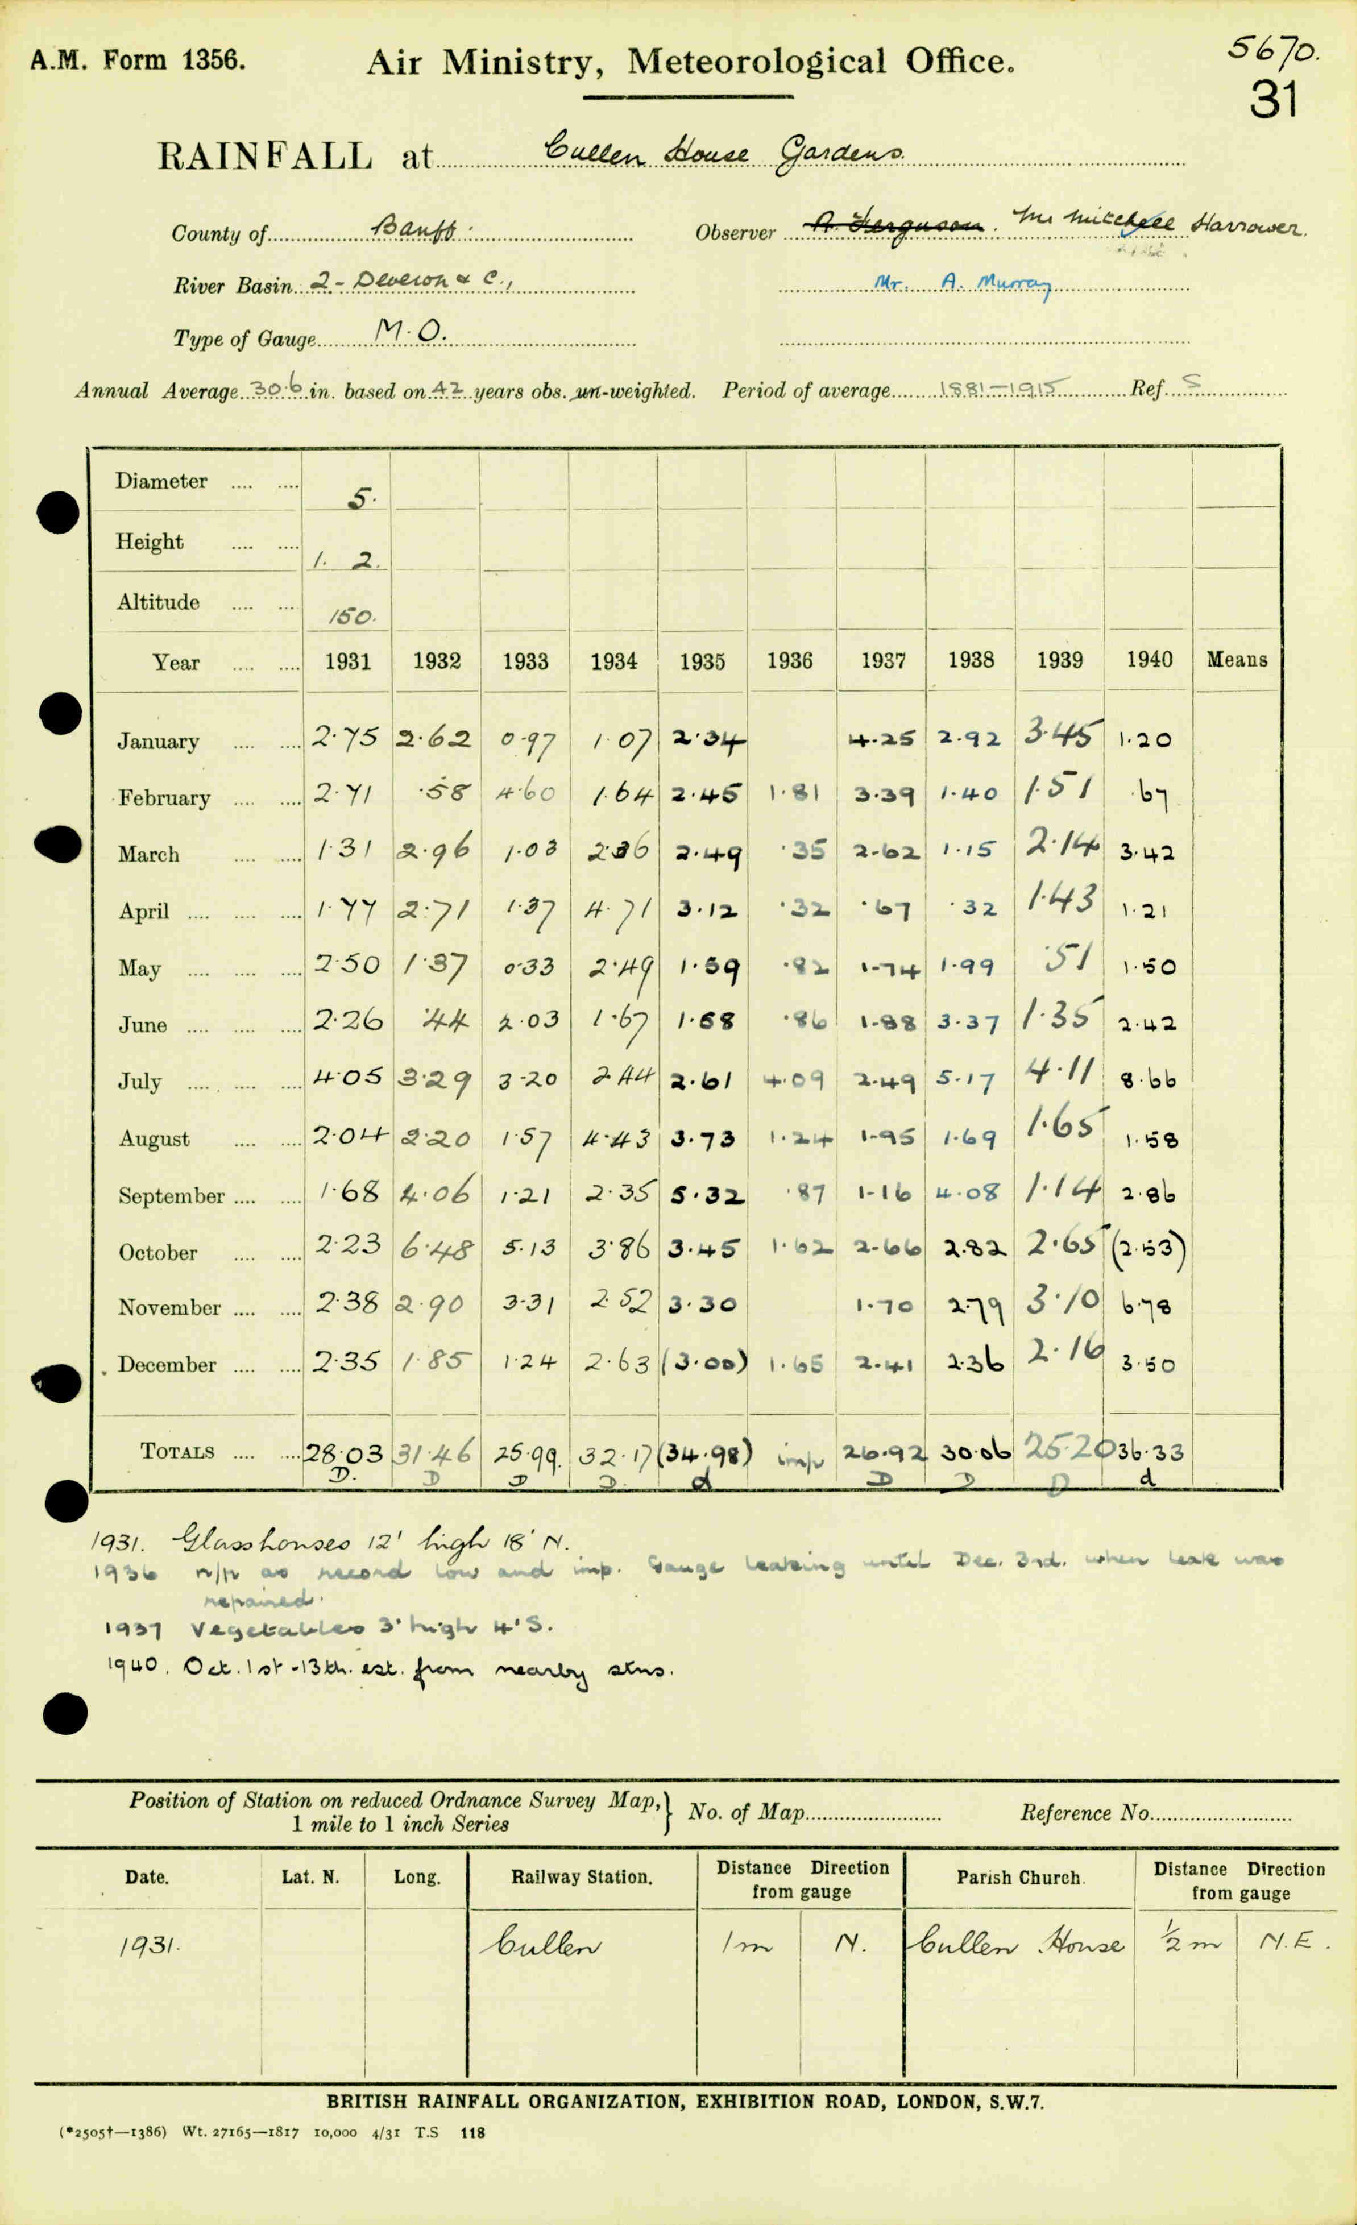 A.M. Form 1356. Air Ministry, Meteorological Office. 5670.
31
RAINFALL at Cullen House Gardens
County of Banff. Observer A. Ferguson. Mr Mitchell Harrower.
River Basin 2- Deveron & C., Mr. A. Murray
Type of Gauge M.O.
Annual Average 30.6 in. based on 42 years obs. un-weighted. Period of average 1881-1915 Ref. S
Diameter .... .... 5.
Height .... .... 1. 2.
Altitude .... .... 150.
Year .... .... 1931 1932 1933 1934 1935 1936 1937 1938 1939 1940 Means
January .... .... 2.75 2.62 0.97 1.07 2.34 4.25 2.92 3.45 1.20
February .... .... 2.71 .58 4.60 1.64 2.45 1.81 3.39 1.40 1.51 .67
March .... .... 1.31 2.96 1.03 2.36 2.49 .35 2.62 1.15 2.14 3.42
April .... .... .... 1.77 2.71 1.37 4.71 3.12 .32 .67 .32 1.43 1.21
May .... .... .... 2.50 1.37 0.33 2.49 1.59 .82 1.74 1.99 .51 1.50
June .... .... .... 2.26 .44 2.03 1.67 1.58 .86 1.88 3.37 1.35 2.42
July .... .... .... 4.05 3.29 3.20 2.44 2.61 4.09 2.49 5.17 4.11 8.66
August .... .... 2.04 2.20 1.57 4.43 3.73 1.24 1.95 1.69 1.65 1.58
September .... .... 1.68 4.06 1.21 2.35 5.32 .87 1.16 4.08 1.14 2.86
October .... .... 2.23 6.48 5.13 3.86 3.45 1.62 2.66 2.82 2.65 (2.53)
November .... .... 2.38 2.90 3.31 2.52 3.30 1.70 2.79 3.10 6.78
December .... .... 2.35 1.85 1.24 2.63 (3.00) 1.65 2.41 2.36 2.16 3.50
TOTALS .... .... 28.03 31.46 25.99. 32.17 (34.98) imp 26.92 30.06 25.20 36.33
D. D D D. d D D D d
1931. Glasshouses 12' high 18' N.
1936 n/p as record low and imp. Gauge leaking until Dec. 3rd. when leak was
repaired.
1937 Vegetables 3' high 4' S.
1940. Oct. 1st -13th. est. from nearby stns.
Position of Station on reduced Ordnance Survey Map,} No. of Map Reference No.
1 mile to 1 inch Series
Date. Lat. N. Long. Railway Station. Distance Direction from gauge Parish Church. Distance Direction from gauge
1931. Cullen 1m N. Cullen House ½ m N.E.
BRITISH RAINFALL ORGANIZATION, EXHIBITION ROAD, LONDON, S.W.7.
(*2505†—1386) Wt. 27165—1817 10,000 4/31 T.S 118